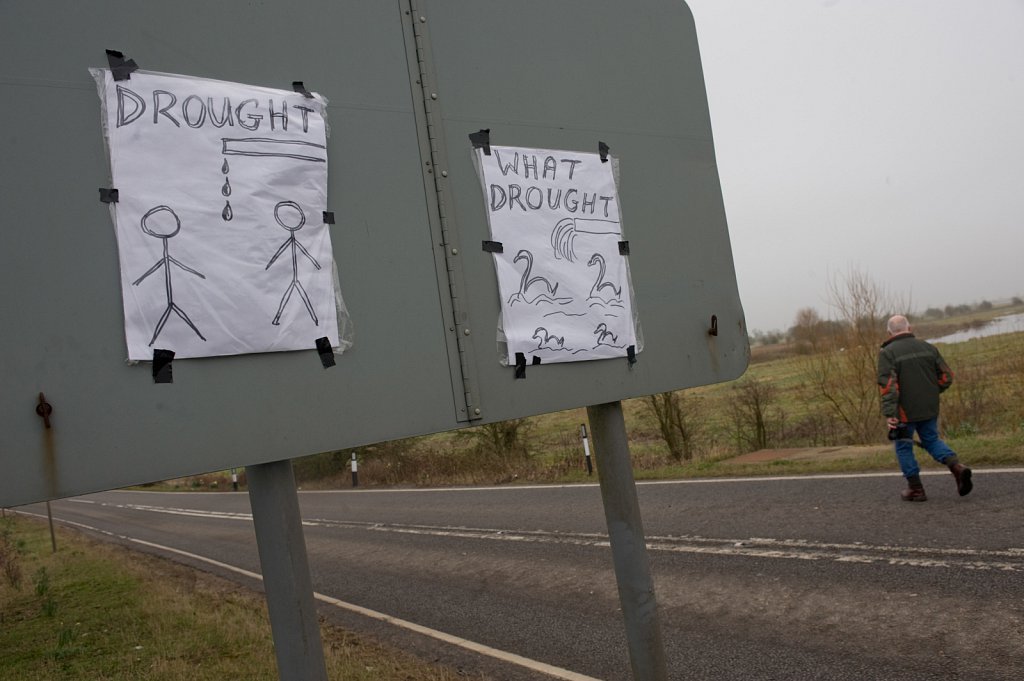 DROUGHT
WHAT
DROUGHT